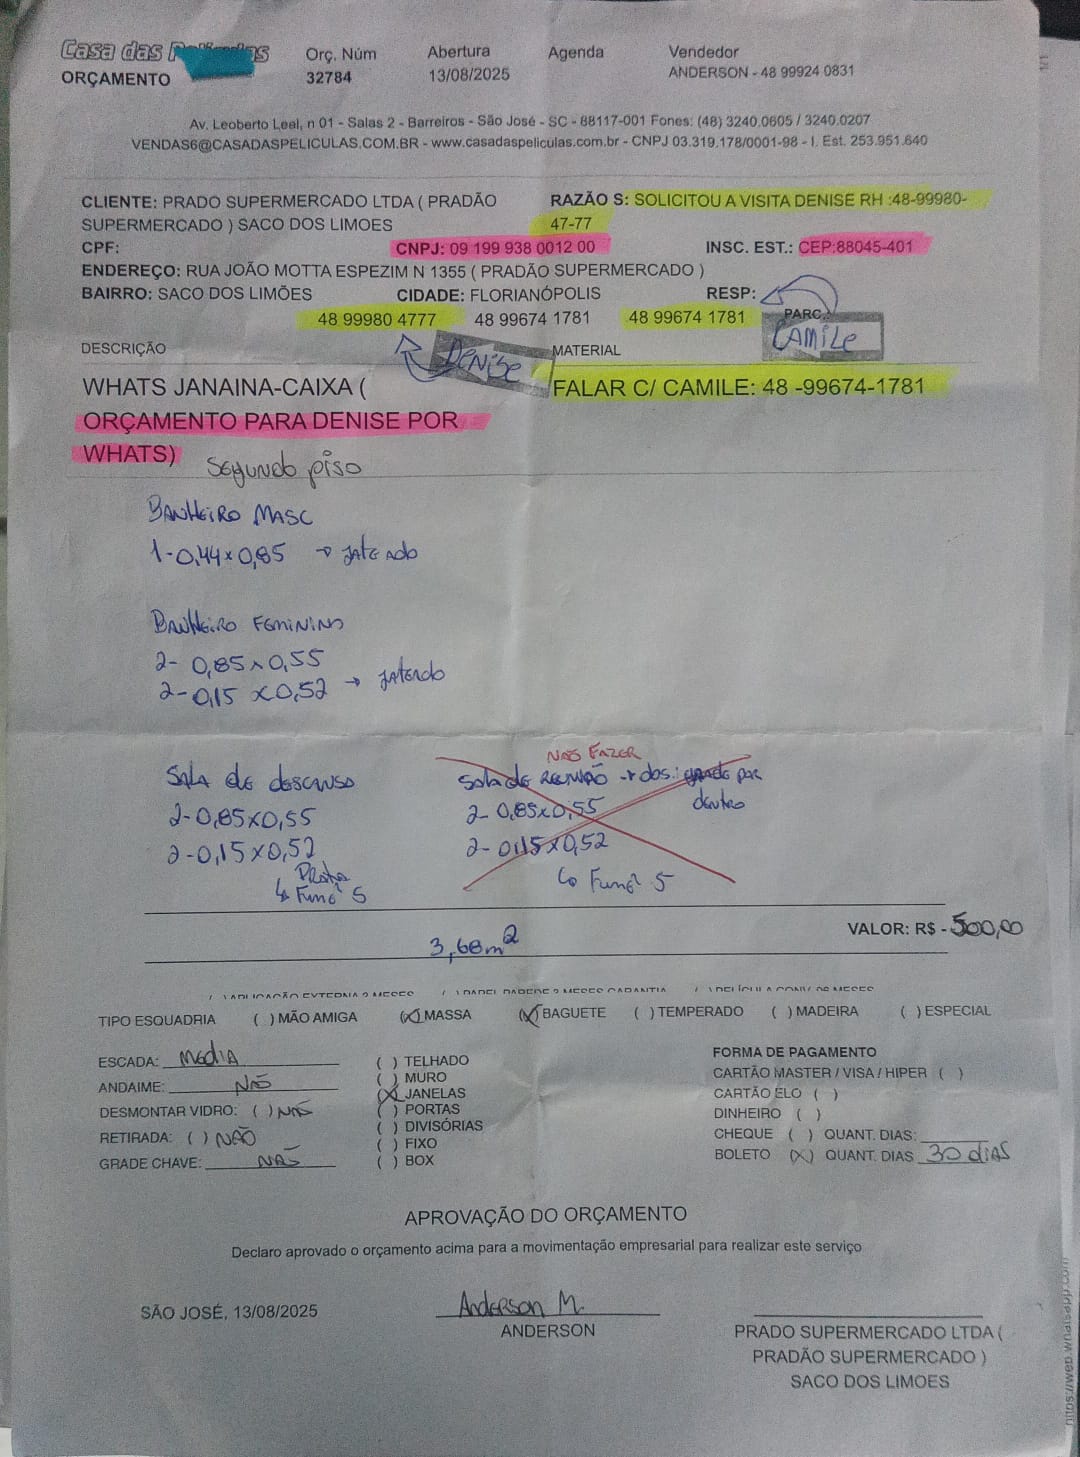 Casa das Películas
ORÇAMENTO
Orç. Núm
32784
Abertura
13/08/2025
Agenda
Vendedor
ANDERSON - 48 99924 0831
Av. Leoberto Leal, n 01 - Salas 2 - Barreiros - São José - SC - 88117-001 Fones: (48) 3240.0605 / 3240.0207
VENDAS6@CASADASPELICULAS.COM.BR - www.casadaspeliculas.com.br - CNPJ 03.319.178/0001-98 - I. Est. 253.951.640
CLIENTE: PRADO SUPERMERCADO LTDA ( PRADÃO
SUPERMERCADO ) SACO DOS LIMOES
RAZÃO S: SOLICITOU A VISITA DENISE RH :48-99980-
47-77
CPF:
CNPJ: 09 199 938 0012 00
INSC. EST.: CEP:88045-401
ENDEREÇO: RUA JOÃO MOTTA ESPEZIM N 1355 ( PRADÃO SUPERMERCADO )
BAIRRO: SACO DOS LIMÕES
CIDADE: FLORIANÓPOLIS
RESP:
48 99980 4777
48 99674 1781
48 99674 1781
PARC.
CAMILE
DESCRIÇÃO
DENISE
MATERIAL
WHATS JANAINA-CAIXA (
ORÇAMENTO PARA DENISE POR
WHATS)
FALAR C/ CAMILE: 48 -99674-1781
Segundo piso
BANHEIRO MASC
1-0,44x0,85 → JATEADO
BANHEIRO FEMININO
2- 0,85x0,55
2-0,15 x0,52 → JATEADO
SALA de descanso
2-0,85x0,55
2-0,15x0,52
PRATA
↳ Fumê 5
NÃO FAZER
Sala de REUNIÃO → obs.: grade por
dentro
2- 0,85x0,55
2- 0,15x0,52
↳ Fumê 5
3,68m²
VALOR: R$ - 500,00
( ) APLICAÇÃO EXTERNA 3 MESES ( ) PAPEL PAREDE 3 MESES GARANTIA
TIPO ESQUADRIA ( ) MÃO AMIGA (X) MASSA (X) BAGUETE ( ) TEMPERADO ( ) MADEIRA ( ) ESPECIAL
ESCADA: MEDIA
ANDAIME: NÃO
DESMONTAR VIDRO: ( ) NÃO
RETIRADA: ( ) NÃO
GRADE CHAVE: NÃO
( ) TELHADO
( ) MURO
(X) JANELAS
( ) PORTAS
( ) DIVISÓRIAS
( ) FIXO
( ) BOX
FORMA DE PAGAMENTO
CARTÃO MASTER / VISA / HIPER ( )
CARTÃO ELO ( )
DINHEIRO ( )
CHEQUE ( ) QUANT. DIAS:
BOLETO (X) QUANT. DIAS 30 dias
APROVAÇÃO DO ORÇAMENTO
Declaro aprovado o orçamento acima para a movimentação empresarial para realizar este serviço
SÃO JOSÉ, 13/08/2025
Anderson M.
ANDERSON
PRADO SUPERMERCADO LTDA (
PRADÃO SUPERMERCADO )
SACO DOS LIMOES
https://web.whatsapp.com
1/1